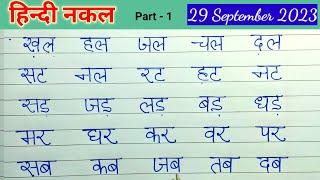 हिन्दी नकल Part - 1 29 September 2023
ख़ल हल जल चल दल
सट नल रट हट नट
सड़ जड़ लड़ बड़ धड़
मर घर कर वर पर
सब कब जब तब दब